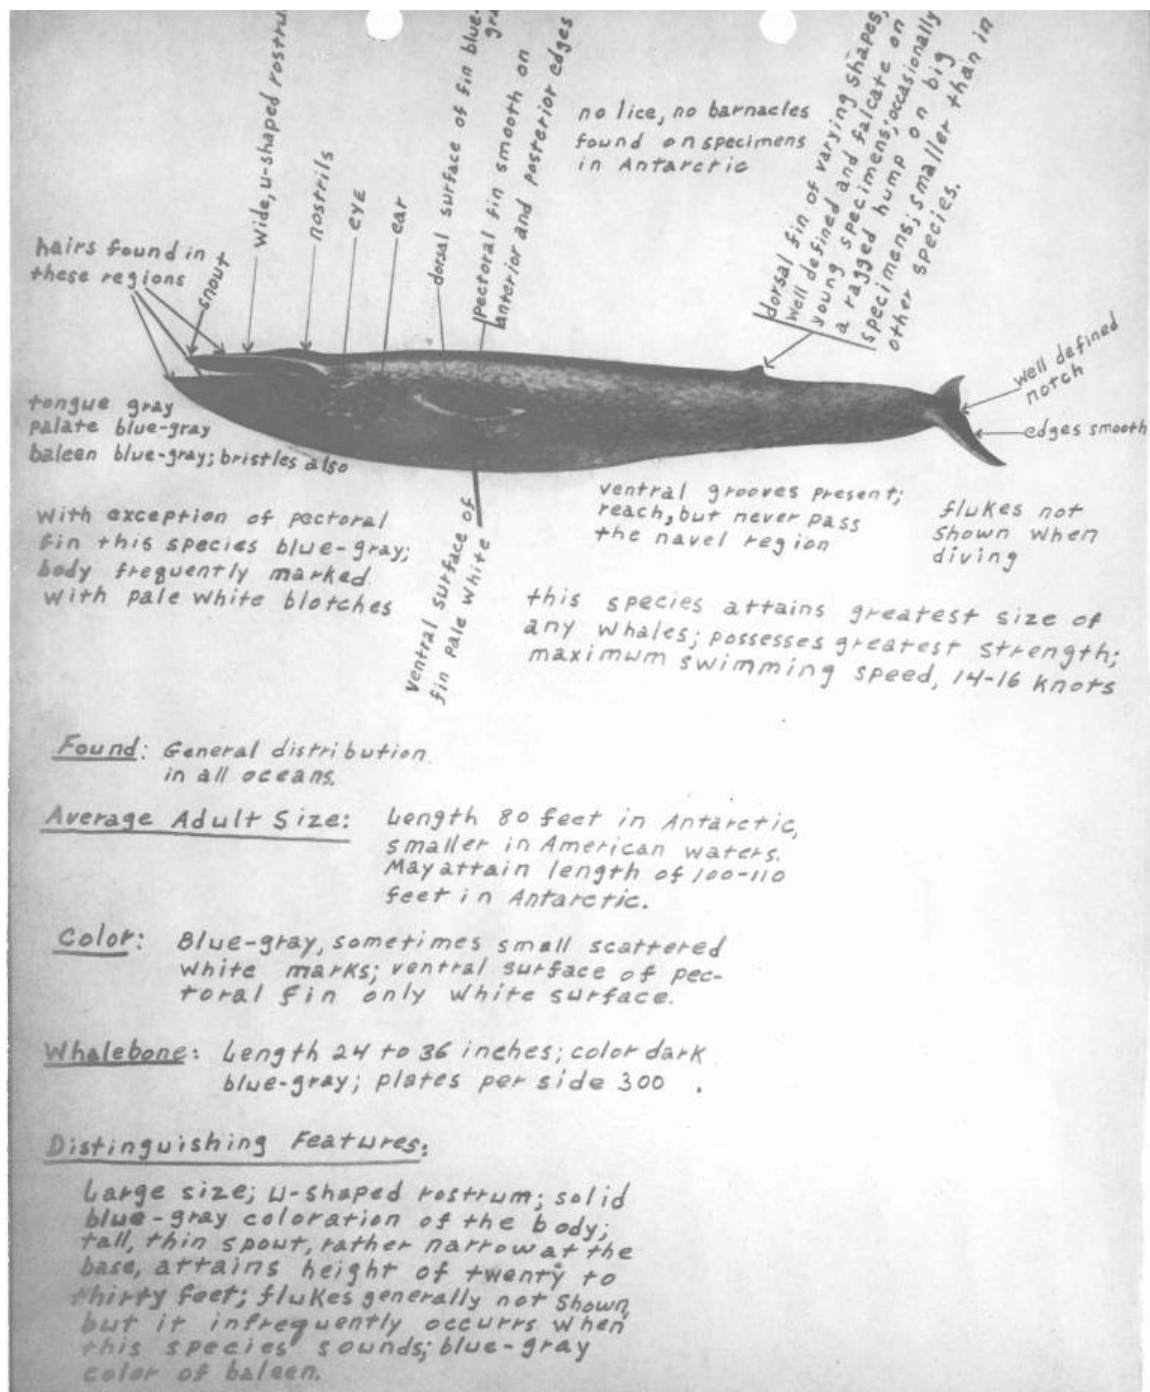 wide, u-shaped rostru
nostrils
eye
ear
dorsal surface of fin blue-
gra
pectoral fin smooth on
anterior and posterior edges
no lice, no barnacles
found on specimens
in Antarctic
dorsal fin of varying shapes,
well defined and falcate on
young specimens; occasionally
a ragged hump on big
specimens; smaller than in
other species.
hairs found in
these regions
snout
well defined
notch
edges smooth
tongue gray
palate blue-gray
baleen blue-gray; bristles also
with exception of pectoral
fin this species blue-gray;
body frequently marked
with pale white blotches
ventral surface of
fin pale white
ventral grooves present;
reach, but never pass
the navel region
flukes not
shown when
diving
this species attains greatest size of
any whales; possesses greatest strength;
maximum swimming speed, 14-16 knots
Found: General distribution
in all oceans.
Average Adult Size: Length 80 feet in Antarctic,
smaller in American waters.
May attain length of 100-110
feet in Antarctic.
Color: Blue-gray, sometimes small scattered
white marks; ventral surface of pec-
toral fin only white surface.
Whalebone: Length 24 to 36 inches; color dark
blue-gray; plates per side 300 .
Distinguishing Features:
Large size; u-shaped rostrum; solid
blue-gray coloration of the body;
tall, thin spout, rather narrow at the
base, attains height of twenty to
thirty feet; flukes generally not shown,
but it infrequently occurrs when
this species sounds; blue-gray
color of baleen.